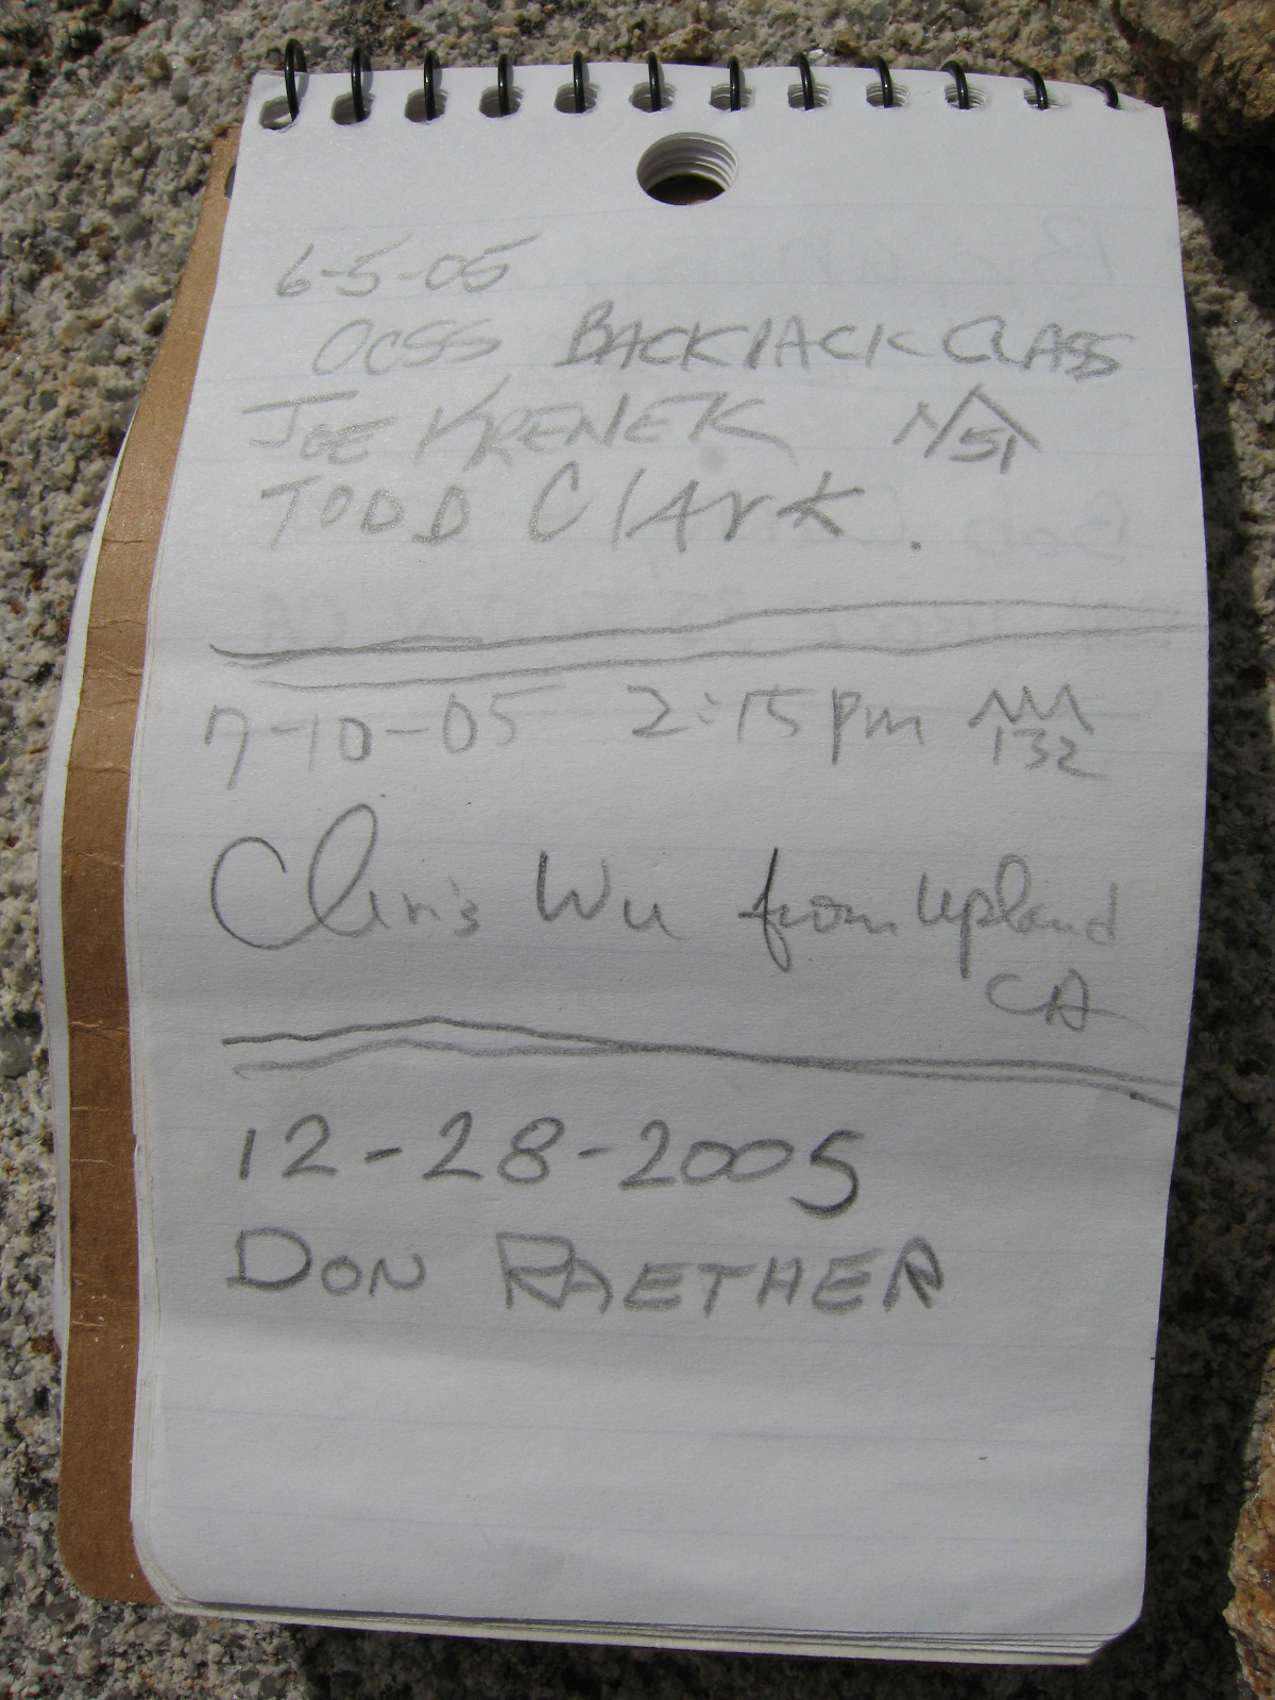 6-5-05
OCSS BACKJACK CLASS
JOE KRENEK
TODD ClArk.
7-10-05 2:15 pm 132
Chris Wu from Upland
CA
12-28-2005
DON RAETHER